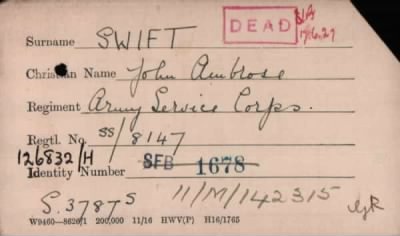 DEAD
17.6.27
Surname SWIFT
Christian Name John Ambrose
Regiment Army Service Corps.
Regtl. No. SS/8147
126832/H
Identity Number SFB 1678
S.3787S 11/M/142315
W9460—8626/1 200,000 11/16 HWV(P) H16/1765